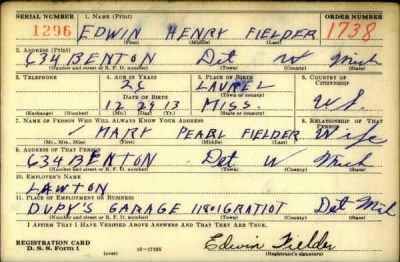 SERIAL NUMBER 1. NAME (Print) ORDER NUMBER
1296 EDWIN HENRY FIELDER 1738
(First) (Middle) (Last)
2. ADDRESS (Print)
634 BENTON Det W Mich
(Number and street or R. F. D. number) (Town) (County) (State)
3. TELEPHONE 4. AGE IN YEARS 5. PLACE OF BIRTH 6. COUNTRY OF CITIZENSHIP
LAUREL
DATE OF BIRTH (Town or county)
12 29 13 MISS. U.S.
(Exchange) (Number) (Mo.) (Day) (Yr.) (State or country)
7. NAME OF PERSON WHO WILL ALWAYS KNOW YOUR ADDRESS 8. RELATIONSHIP OF THAT PERSON
MARY PEARL FIELDER Wife
(Mr., Mrs., Miss) (First) (Middle) (Last)
9. ADDRESS OF THAT PERSON
634 BENTON Det W Mich
(Number and street or R. F. D. number) (Town) (County) (State)
10. EMPLOYER'S NAME
LAWTON
11. PLACE OF EMPLOYMENT OR BUSINESS
DUPY'S GARAGE 11801 GRATIOT Det Mich
(Number and street or R. F. D. number) (Town) (County) (State)
I AFFIRM THAT I HAVE VERIFIED ABOVE ANSWERS AND THAT THEY ARE TRUE.
REGISTRATION CARD
D. S. S. Form 1 (over) 16-17105 Edwin Fielder